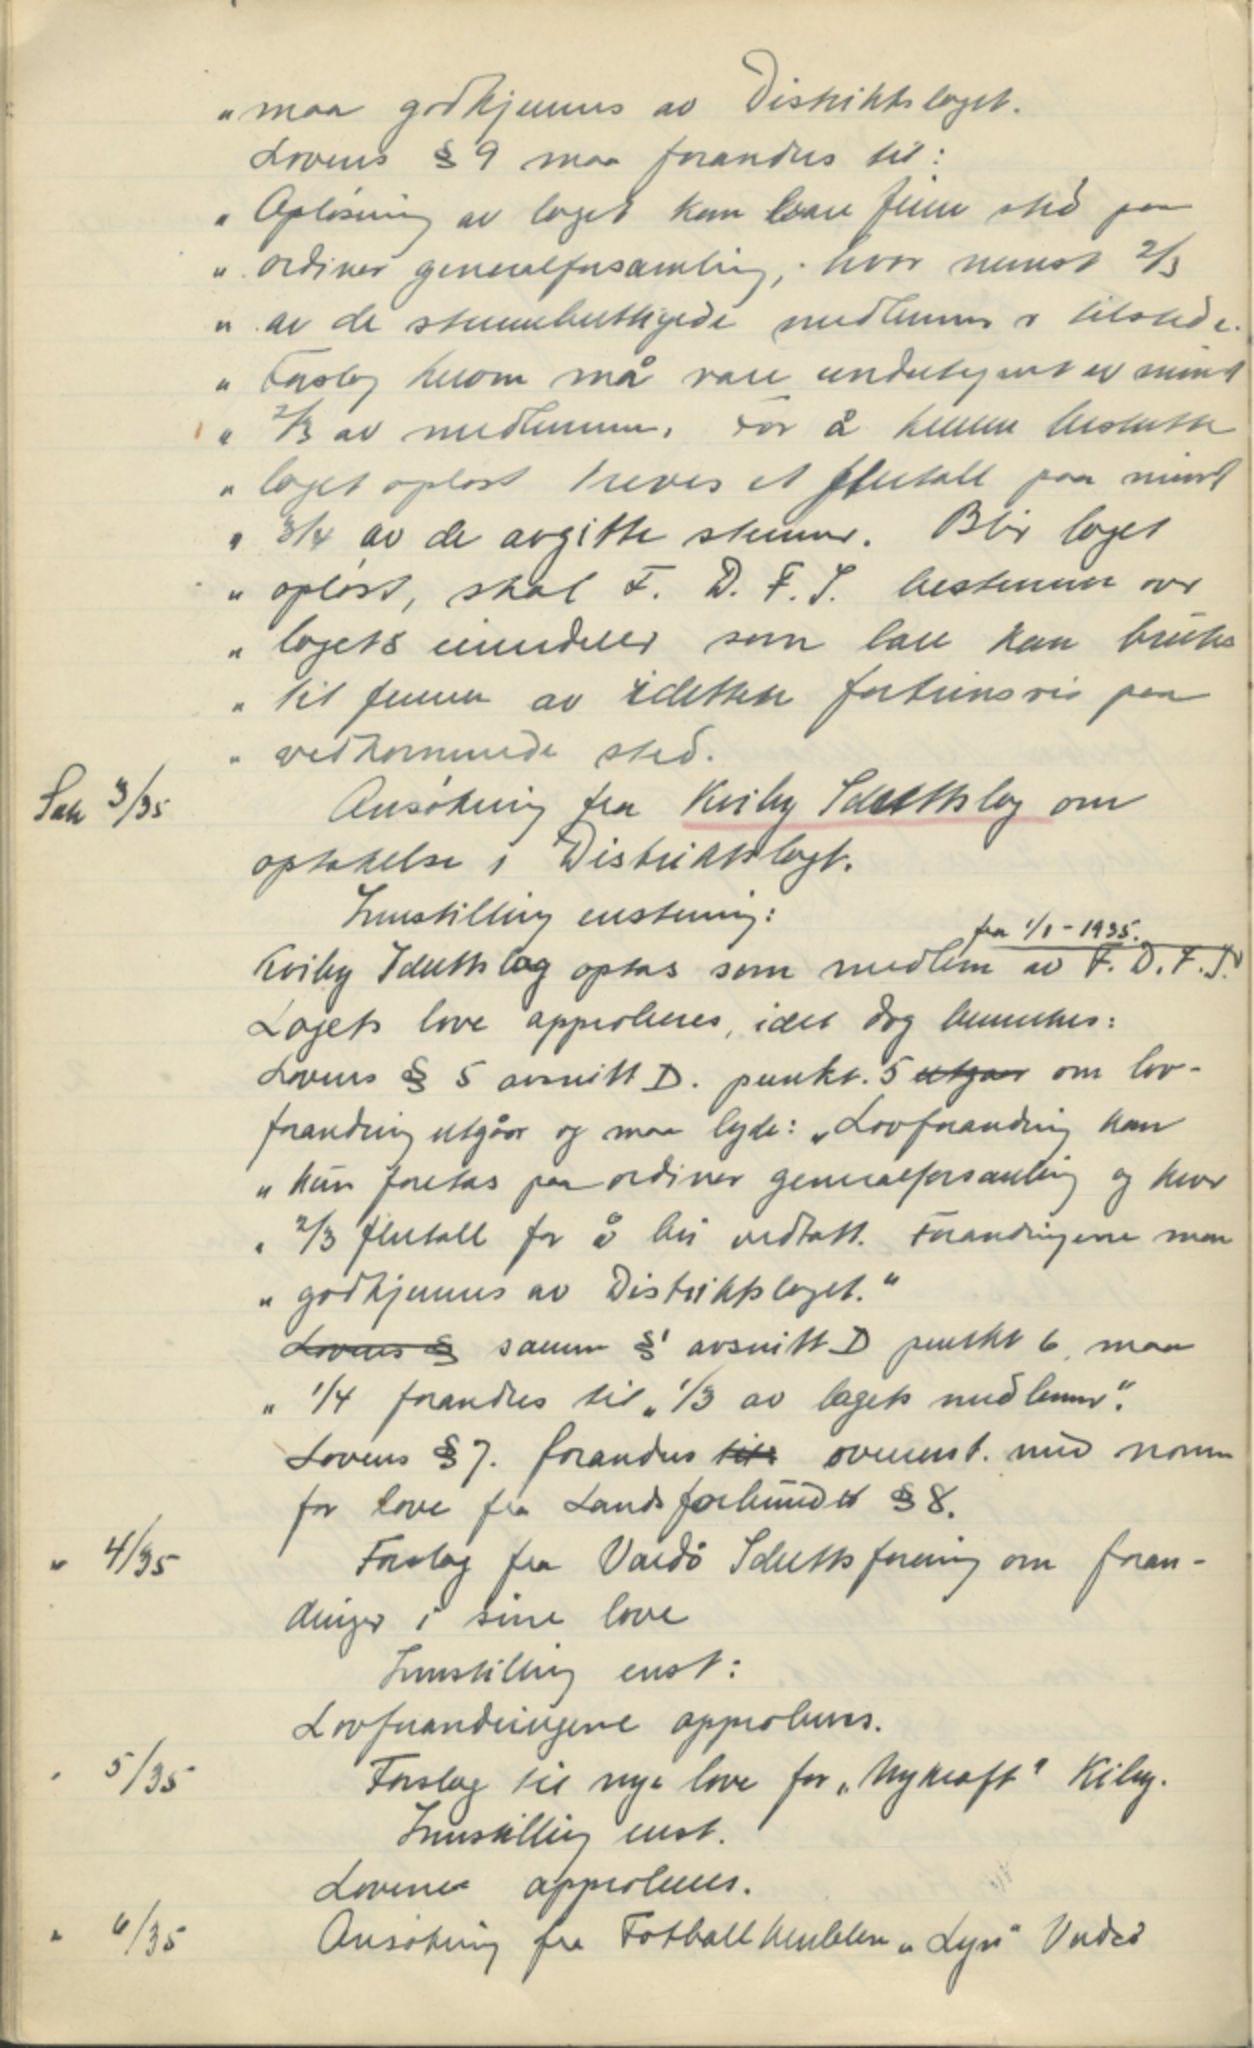 „ maa godkjennes av Distriktslaget.
Lovens § 9 maa forandres til:
„ Opløsning av laget kan bare finne sted paa
„ ordinær generalforsamling, hvor minst 2/3
„ av de stemmeberettigede medlemmer er tilstede.
„ Forslag herom må være undertegnet av minst
„ 2/3 av medlemmene. For å kunne beslutte
„ laget opløst kreves et flertall paa minst
„ 3/4 av de avgitte stemmer. Blir laget
„ opløst, skal F. D. F. I. bestemme over
„ lagets eiendeler som bare kan brukes
„ til fremme av idretten fortrinsvis paa
„ vedkommende sted.
Sak 3/35 Ansøkning fra Kviby Idrettslag om
optakelse i Distriktslaget.
Innstilling enstemmig:
fra 1/1 - 1935.
Kviby Idrettslag optas som medlem av F. D. F. I.
Lagets love approberes, idet dog bemerkes:
Lovens § 5 avsnitt D. punkt. 5 utgaar om lov-
forandring utgår og maa lyde: „Lovforandring kan
„ kun foretas paa ordinær generalforsamling og krever
„ 2/3 flertall for å bli vedtatt. Forandringene maa
„ godkjennes av Distriktslaget."
Lovens § samme § avsnitt D punkt 6 maa
„ 1/4 forandres til „1/3 av lagets medlemmer".
Lovens § 7. forandres til overenst. med norm
for love fra Landsforbundet § 8.
„ 4/35 Forslag fra Vardö Idrettsforening om foran-
dringer i sine love
Innstilling enst:
Lovforandringene approberes.
„ 5/35 Forslag til nye love for „Nykraft" Kiby.
Innstilling enst.
Lovene approberes.
„ 6/35 Ansøkning fra Fotballklubben „Lyn" Vadsö